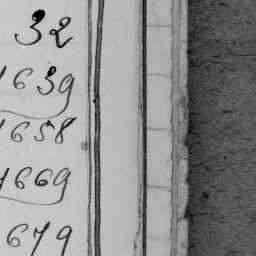 32
1639
1658
1669
679